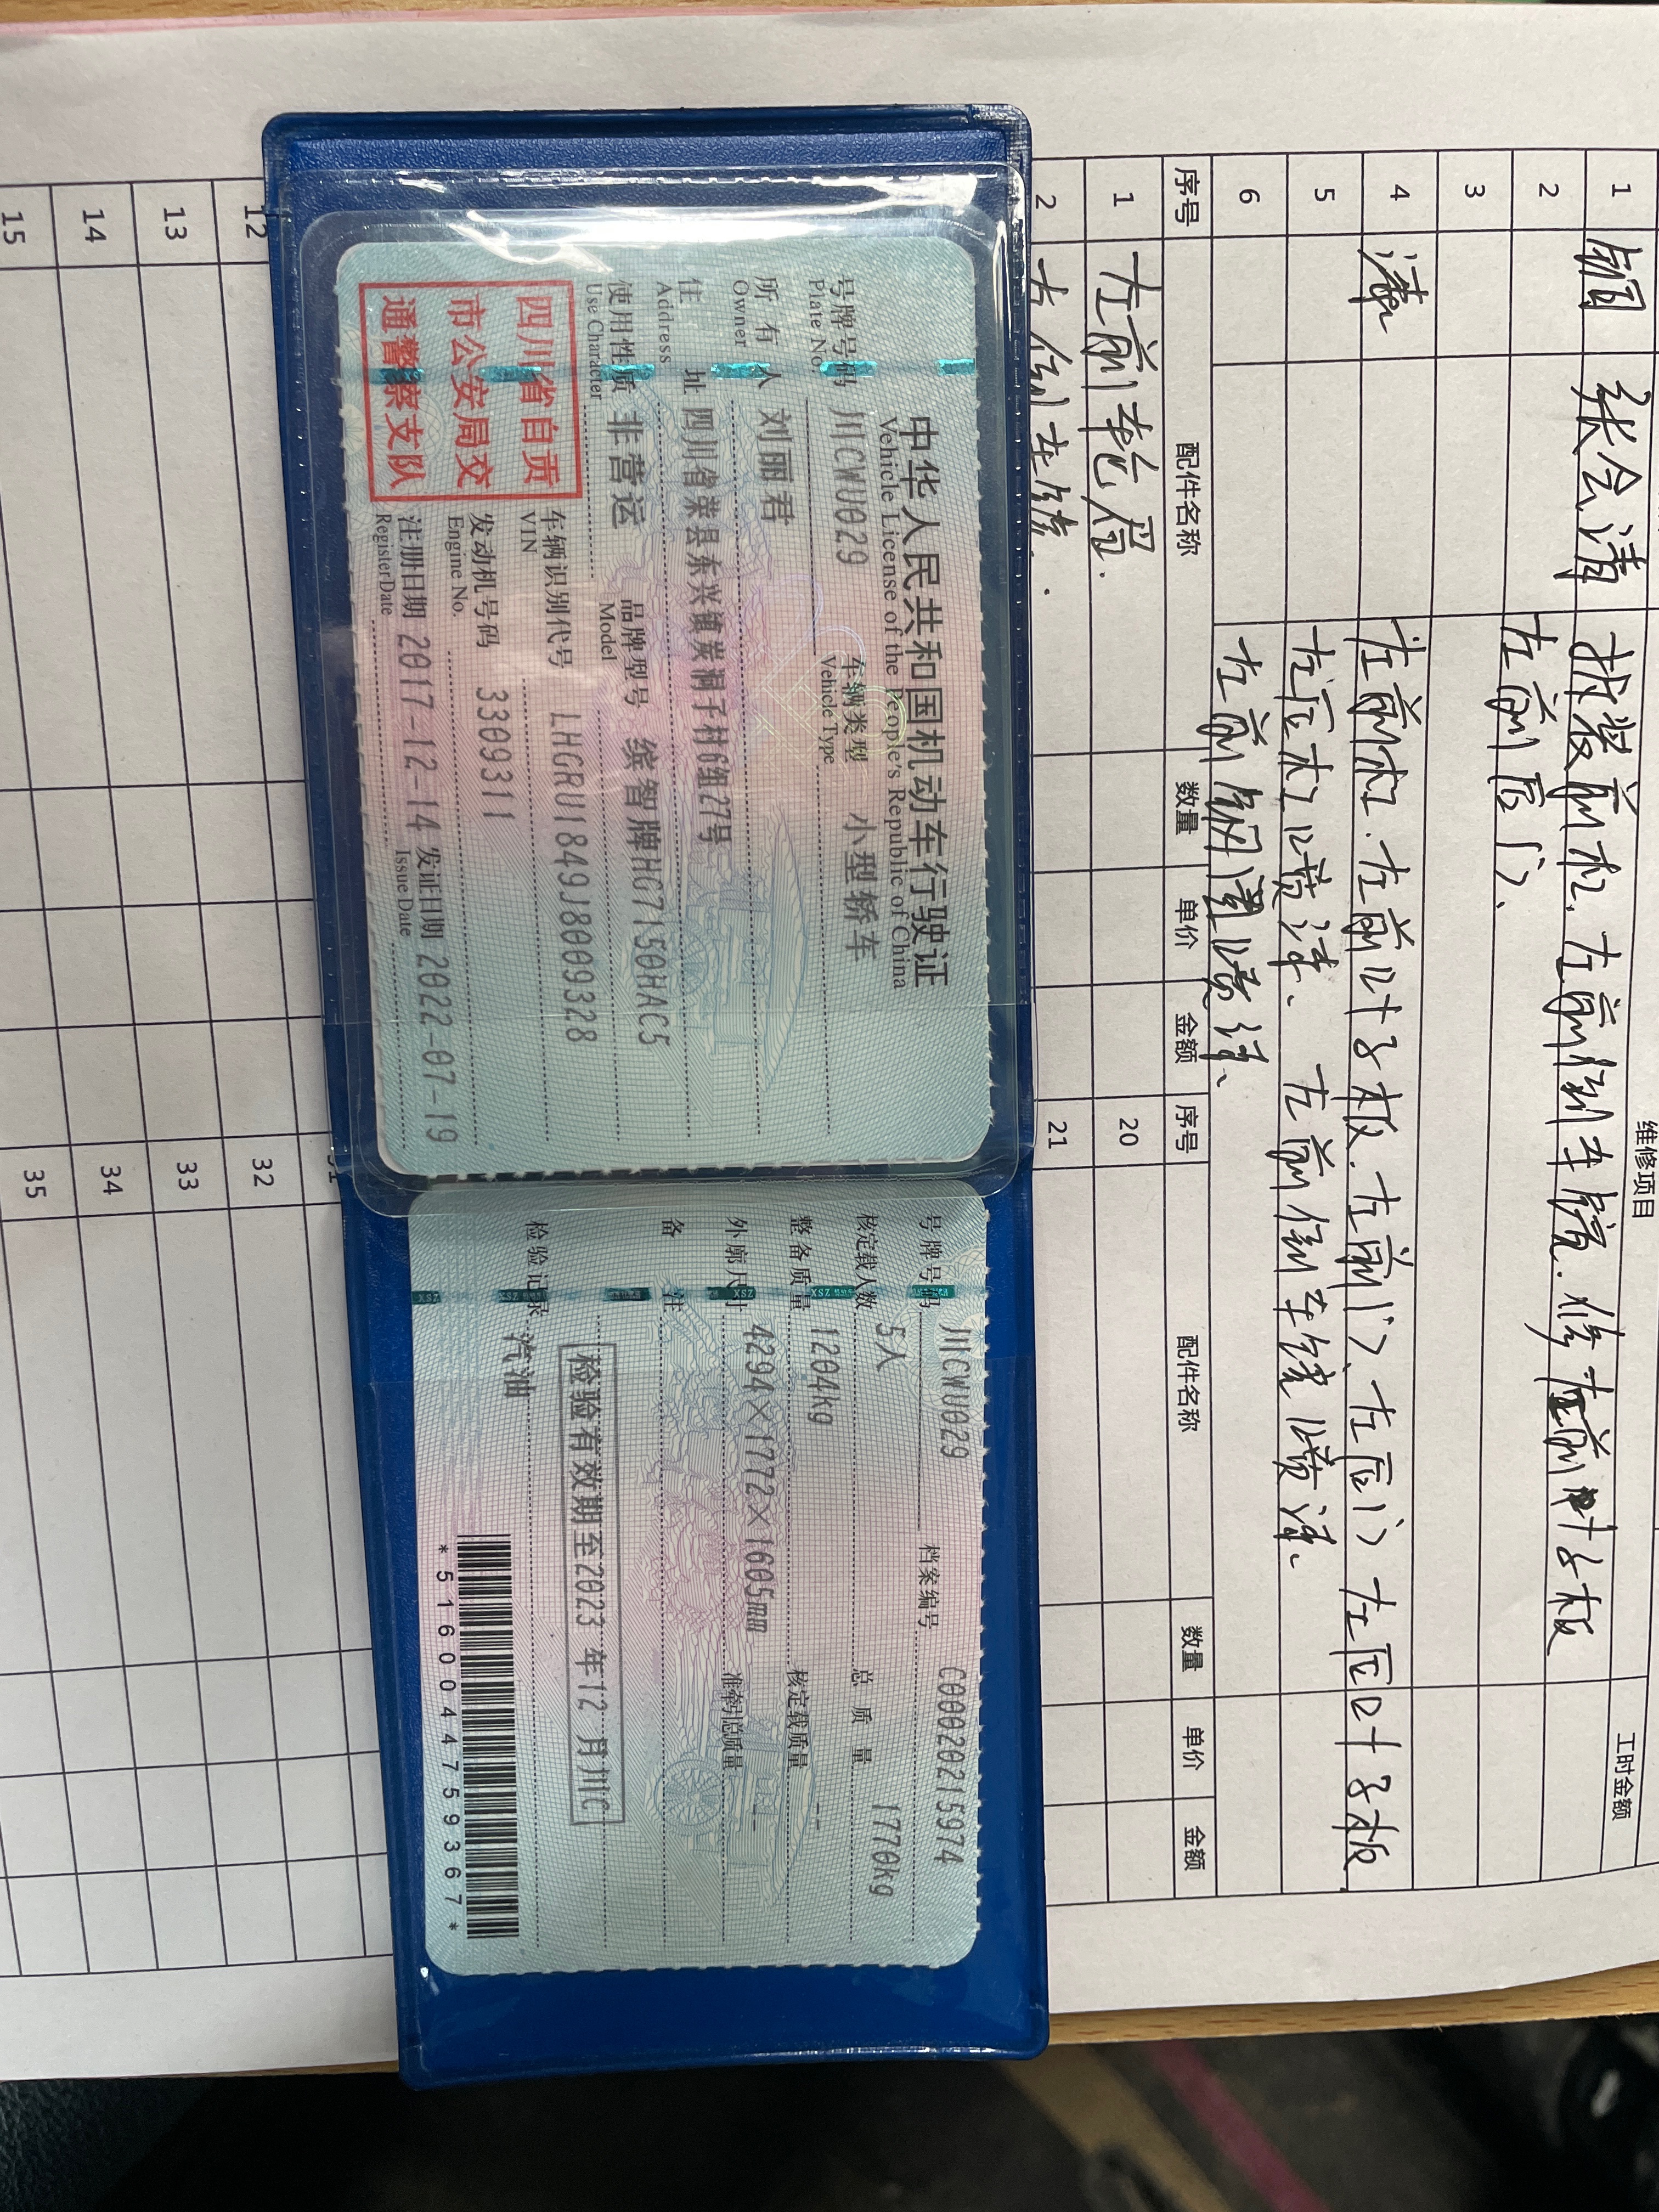 维修项目 工时金额
1 钣 张会清 拆装前杠.左前侧车镜.修左前叶子板
2 左前后门、
3
4 漆 左前杠.左前叶子板.左前门、左后门、左后叶子板
5 左后杠喷漆、左前侧车镜喷漆、
6 左前钢圈喷漆、
序号 配件名称 数量 单价 金额 序号 配件名称 数量 单价 金额
1 左前轮眉. 20
2 左侧车镜. 21
中华人民共和国机动车行驶证
Vehicle License of the People's Republic of China
号牌号码 川CWU029 车辆类型 小型轿车
Plate No. Vehicle Type
所有人 刘丽君
Owner
住址 四川省荣县东兴镇炭洞子村6组27号
Address
使用性质 非营运 品牌型号 缤智牌HG7150HAC5
Use Character Model
四川省自贡
市公安局交
通警察支队
车辆识别代号 LHGRU1849J8009328
VIN
发动机号码 3309311
Engine No.
注册日期 2017-12-14 发证日期 2022-07-19
Register Date Issue Date
号牌号码 川CWU029 档案编号 C00020215974
核定载人数 5人 总质量 1770kg
整备质量 1204kg 核定载质量 --
外廓尺寸 4294×1772×1605mm 准牵引总质量 --
备注
检验有效期至2023年12月川C
检验记录 汽油
*5160044759367*
12 31
13 32
14 33
15 34
35